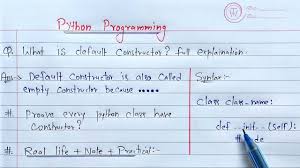 Python Programming
Q. What is default Constructor? full explaination.
Ans:- Default Constructor is also called
empty constructor because .....
#. Prove every python class have
Constructor?
#. Real life + Note + Practical:-
Syntax:-
Class class-name:
def __init__(self):